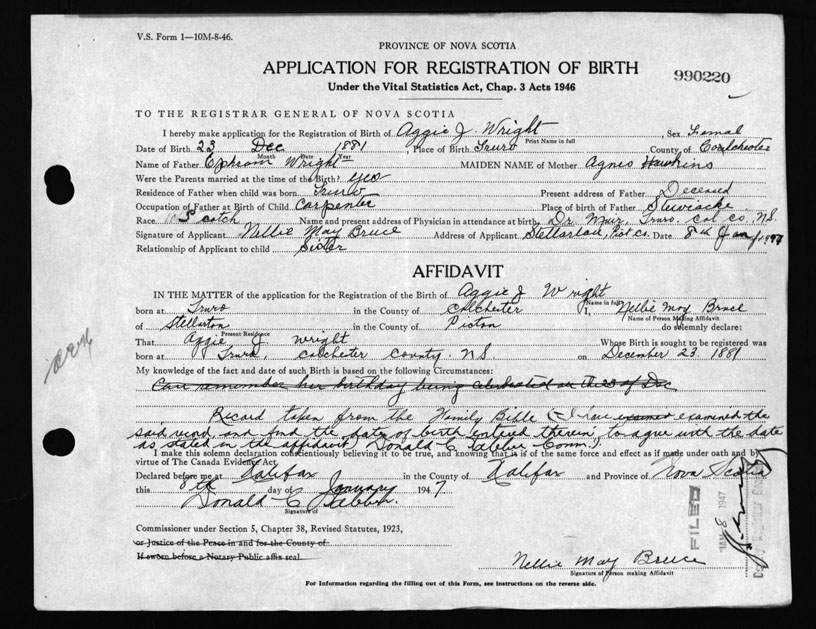 V.S. Form 1—10M-8-46.
PROVINCE OF NOVA SCOTIA
APPLICATION FOR REGISTRATION OF BIRTH
990220
Under the Vital Statistics Act, Chap. 3 Acts 1946
TO THE REGISTRAR GENERAL OF NOVA SCOTIA
I hereby make application for the Registration of Birth of Aggie J. Wright, Sex Femal
Print Name in full
Date of Birth 23 Dec 1881, Place of Birth Truro County of Coulchester
Month Date Year
Name of Father Ephraim Wright MAIDEN NAME of Mother Agnes Hawkins
Were the Parents married at the time of the Birth? yes
Residence of Father when child was born Truro Present address of Father Deceased
Occupation of Father at Birth of Child Carpenter Place of birth of Father Stewiacke
Race Scotch Name and present address of Physician in attendance at birth, Dr. Muir, Truro, Col. Co. N.S.
Signature of Applicant Nellie May Bruce Address of Applicant Stellarton, Pict Co. Date 8th Jan/1947
Relationship of Applicant to child Sister
AFFIDAVIT
IN THE MATTER of the application for the Registration of the Birth of Aggie J Wright
Name in full
born at Truro in the County of Colchester I, Nellie May Bruce
Name of Person Making Affidavit
of Stellarton in the County of Pictou do solemnly declare:
Present Residence
That Aggie J Wright Whose Birth is sought to be registered was
born at Truro, Colchester County. N.S. on December 23. 1881
My knowledge of the fact and date of such Birth is based on the following Circumstances:
Can remember her birthday being celebrated on the 23 of Dec
Record taken from the Family Bible (I have examined the
said record and find the date of birth entered therein, to agree with the date
as stated in the affidavit, Donald C Comm.)
I make this solemn declaration conscientiously believing it to be true, and knowing that is of the same force and effect as if made under oath and by
virtue of The Canada Evidence Act.
Declared before me at Halifax in the County of Halifax and Province of Nova Scotia
this 8th day of January 1947
Donald C
Signature of
Commissioner under Section 5, Chapter 38, Revised Statutes, 1923,
or Justice of the Peace in and for the County of
If sworn before a Notary Public affix seal.
FILED
JAN 8 1947
Nellie May Bruce
Signature of Person making Affidavit
For Information regarding the filling out of this Form, see instructions on the reverse side.